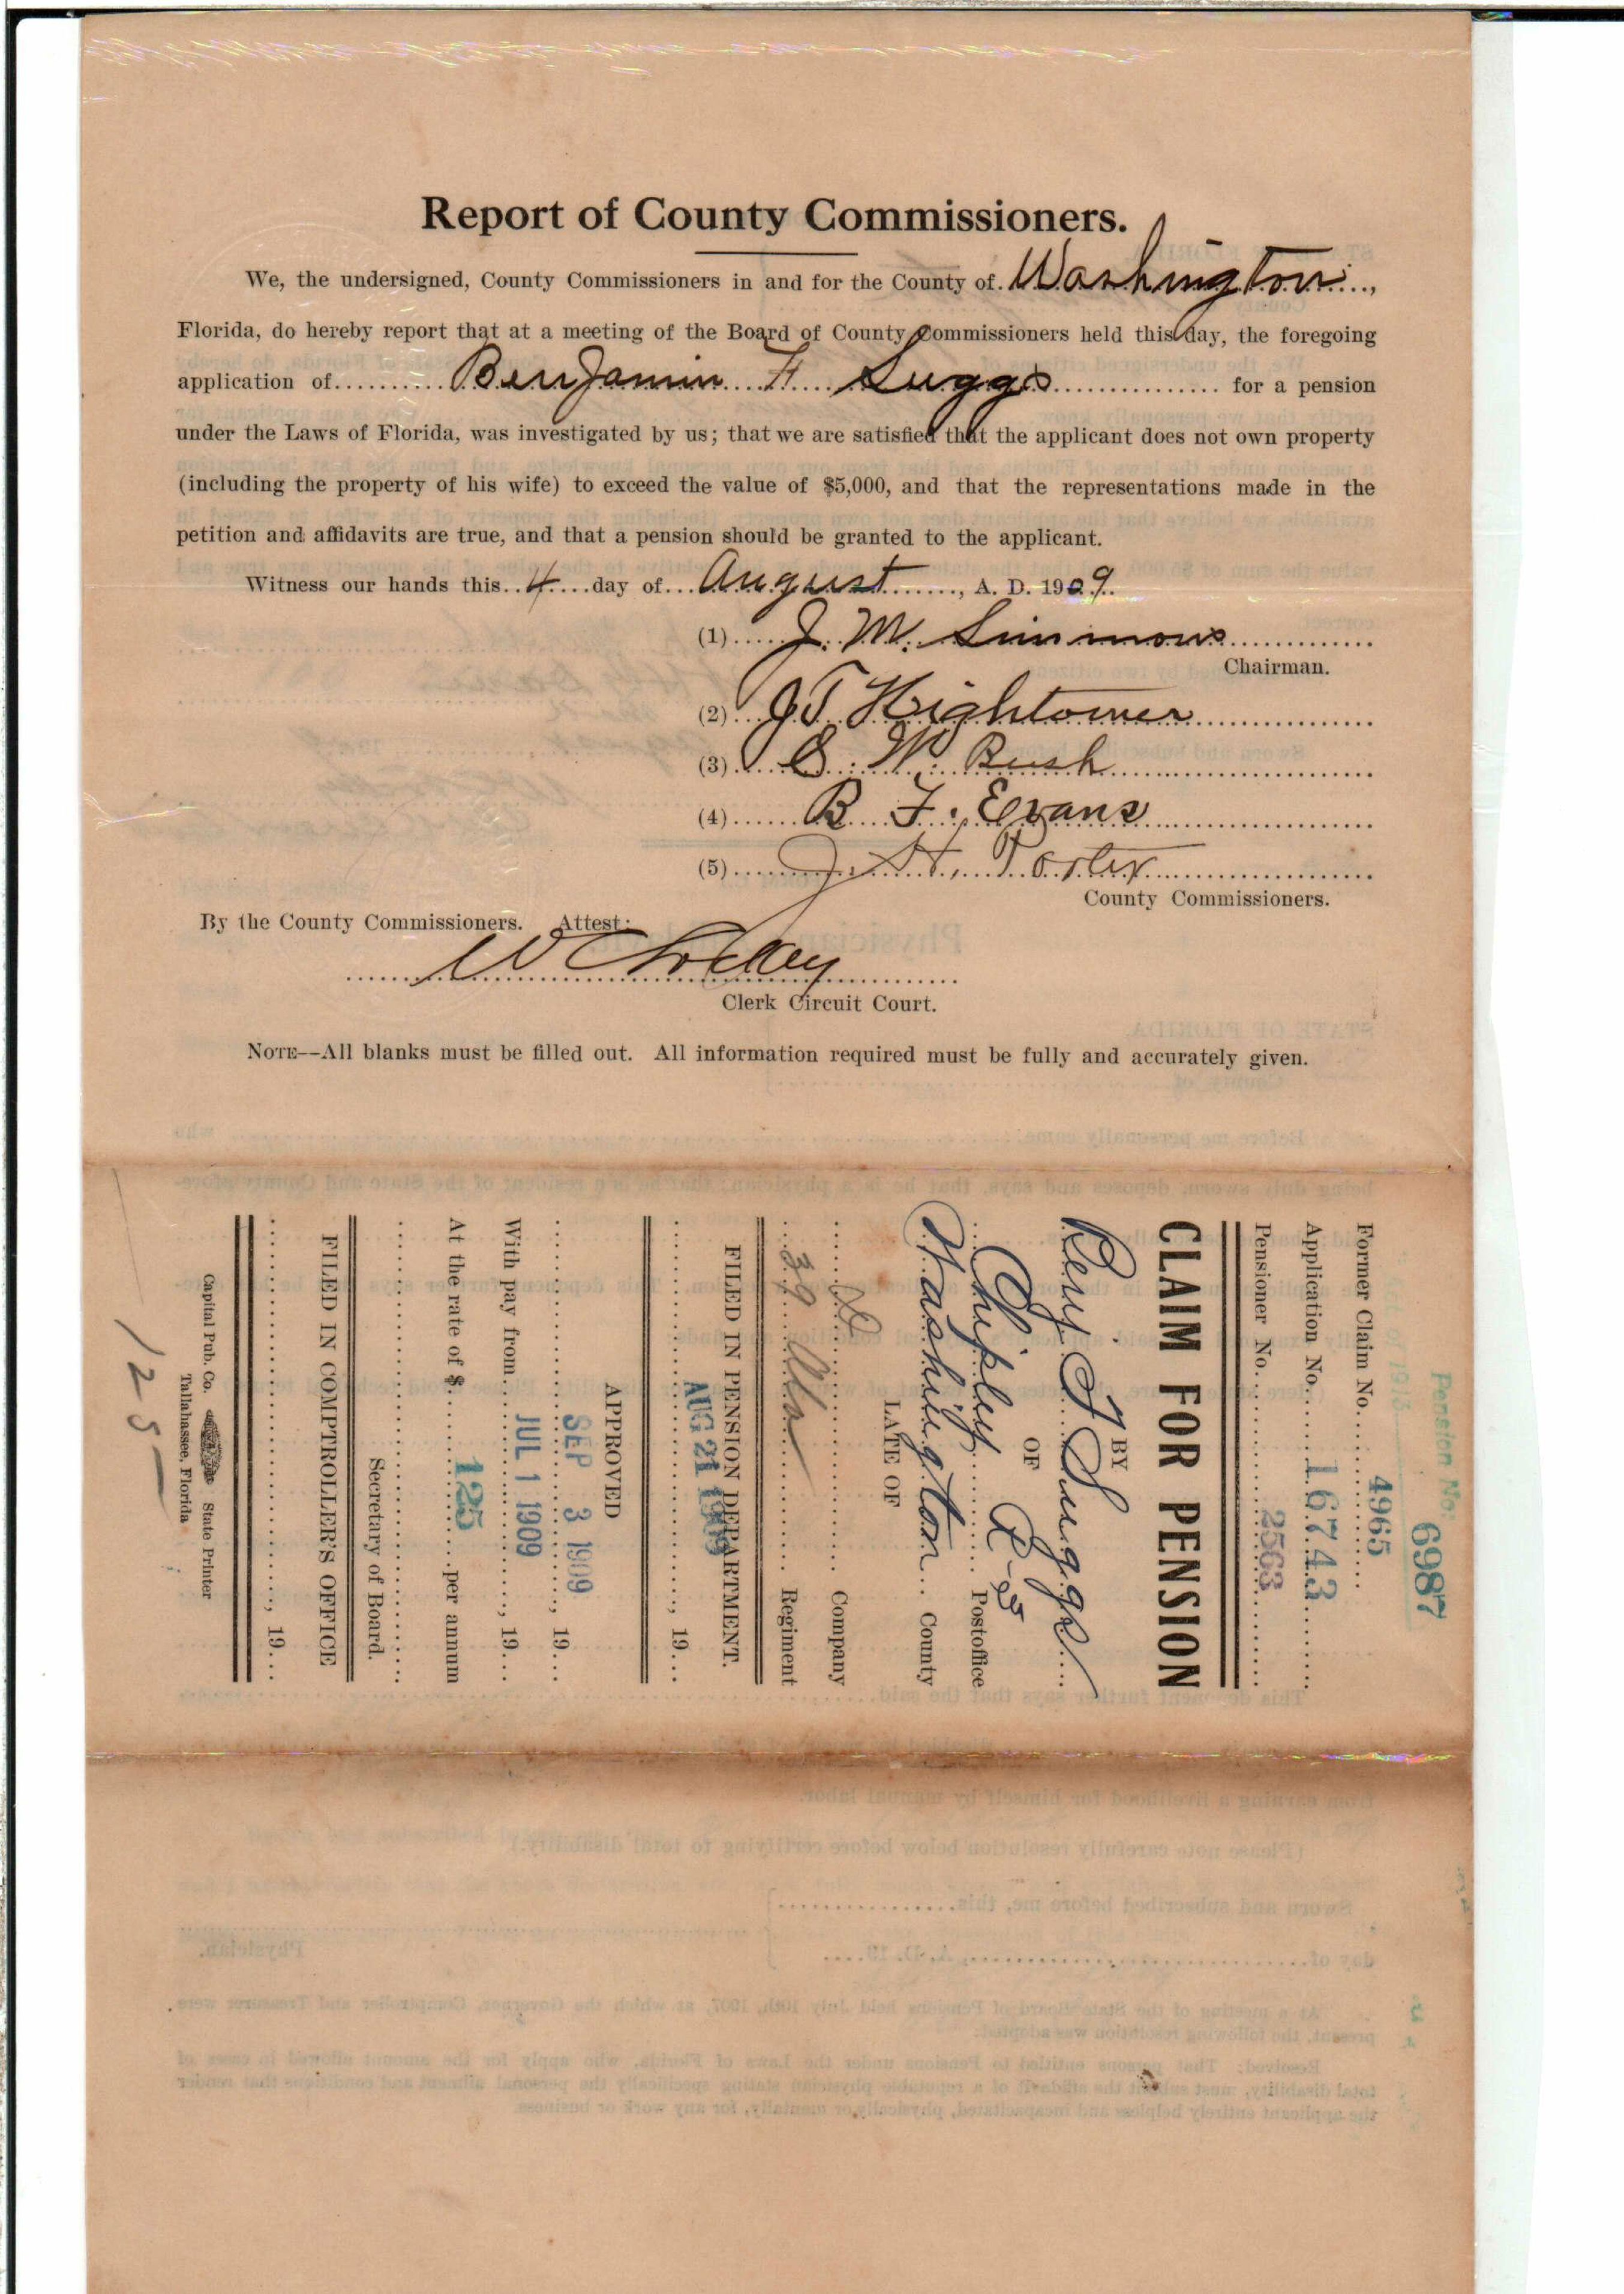 Report of County Commissioners.
We, the undersigned, County Commissioners in and for the County of Washington,
Florida, do hereby report that at a meeting of the Board of County Commissioners held this day, the foregoing
application of Benjamin F Suggs for a pension
under the Laws of Florida, was investigated by us; that we are satisfied that the applicant does not own property
(including the property of his wife) to exceed the value of $5,000, and that the representations made in the
petition and affidavits are true, and that a pension should be granted to the applicant.
Witness our hands this 4 day of August, A. D. 1909.
(1) J. M. Simmons
Chairman.
(2) J T Hightower
(3) S. W. Bush
(4) B. F. Evans
(5) J. H. Porter
County Commissioners.
By the County Commissioners. Attest:
W C Lockey
Clerk Circuit Court.
NOTE--All blanks must be filled out. All information required must be fully and accurately given.
Pension No. 6987
Former Claim No. 4965
Application No. 16743
Pensioner No. 2563
CLAIM FOR PENSION
BY
Benj. F Suggs
OF
Chipley Postoffice
Washington County
LATE OF
Company
39 Ala Regiment
FILED IN PENSION DEPARTMENT.
AUG 21 1909, 19
APPROVED
SEP 3 1909, 19
With pay from JUL 1 1909, 19
At the rate of $ 125 per annum
Secretary of Board.
FILED IN COMPTROLLER'S OFFICE
, 19
Capital Pub. Co. State Printer
Tallahassee, Florida
125